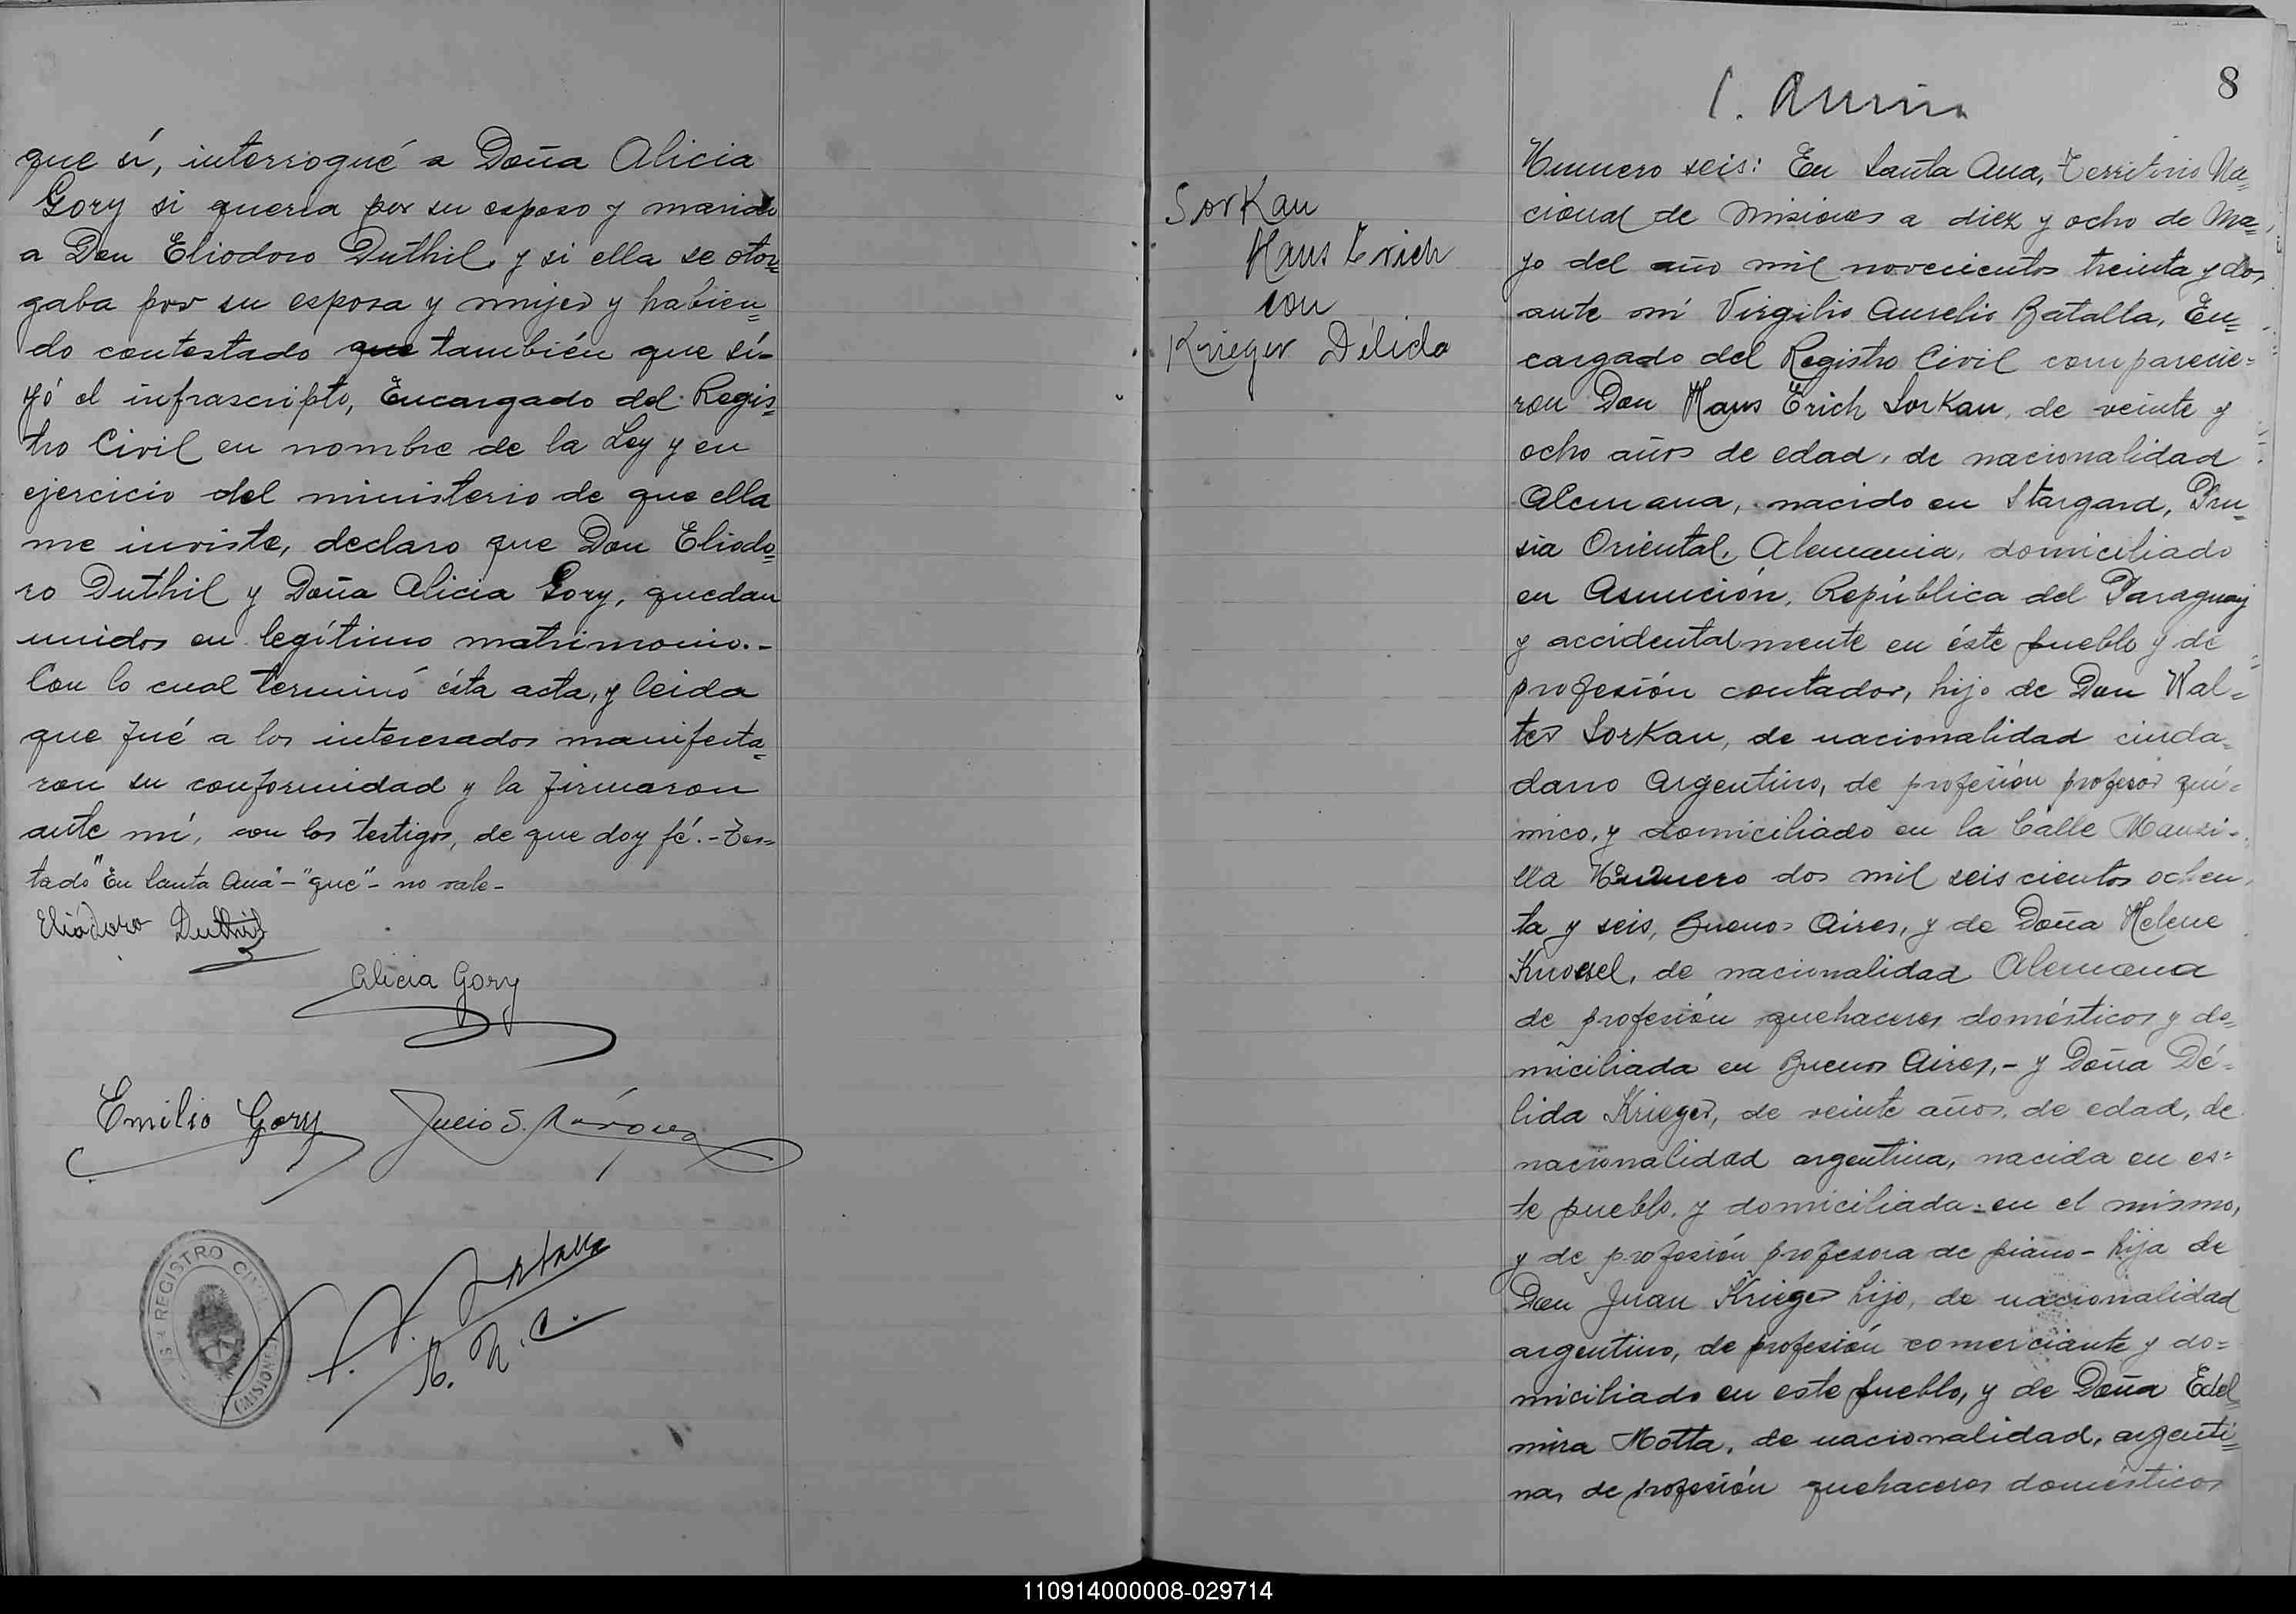 que sí, interrogué a Doña Alicia
Gory si queria por su esposo y marido
a Don Eliodoro Duthil, y si ella se otor=
gaba por su esposa y mujer y habien=
do contestado que también que sí-
yó el infrascripto, Encargado del Regis=
tro Civil en nombre de la Ley y en
ejercicio del ministerio de que ella
me inviste, declaro que Don Eliodo=
ro Duthil y Doña Alicia Gory, quedan
unidos en legítimo matrimonio.-
Con lo cual terminó ésta acta, y leida
que fué a los interesados manifesta=
ron su conformidad y la firmaron
ante mí, con los testigos, de que doy fé.- Tes=
tado "En Santa Ana"-"que"- no vale-
Eliodoro Duthil
Alicia Gory
Emilio Gory Julio S.
REGISTRO CIVIL
MISIONES
Batalla
8
Sorkau
Hans Erich
con
Krieger Délida
Numero seis: En Santa Ana, Territorio Na=
cional de Misiones a diez y ocho de Ma=
yo del año mil novecientos treinta y dos,
ante mí Virgilio Aurelio Batalla, En=
cargado del Registro Civil comparecie=
ron Don Hans Erich Sorkau, de veinte y
ocho años de edad, de nacionalidad
Alemana, nacido en Stargard, Pru=
sia Oriental, Alemania, domiciliado
en Asunción, República del Paraguay
y accidentalmente en éste pueblo y de
profesión contador, hijo de Don Wal=
ter Sorkau, de nacionalidad ciuda=
dano Argentino, de profesión profesor quí=
mico, y domiciliado en la Calle Mansi-
lla Número dos mil seiscientos ochen
ta y seis, Buenos Aires, y de Doña Helene
Knoesel, de nacionalidad Alemana
de profesión quehaceres domésticos y do=
miciliada en Buenos Aires,- y Doña Dé=
lida Krieger, de veinte años, de edad, de
nacionalidad argentina, nacida en es=
te pueblo, y domiciliada en el mismo,
y de profesión profesora de piano- hija de
Don Juan Krieger hijo, de nacionalidad
argentino, de profesión comerciante y do=
miciliado en este pueblo, y de Doña Edel=
mira Motta, de nacionalidad, argenti=
na, de profesión quehaceres domésticos
110914000008-029714